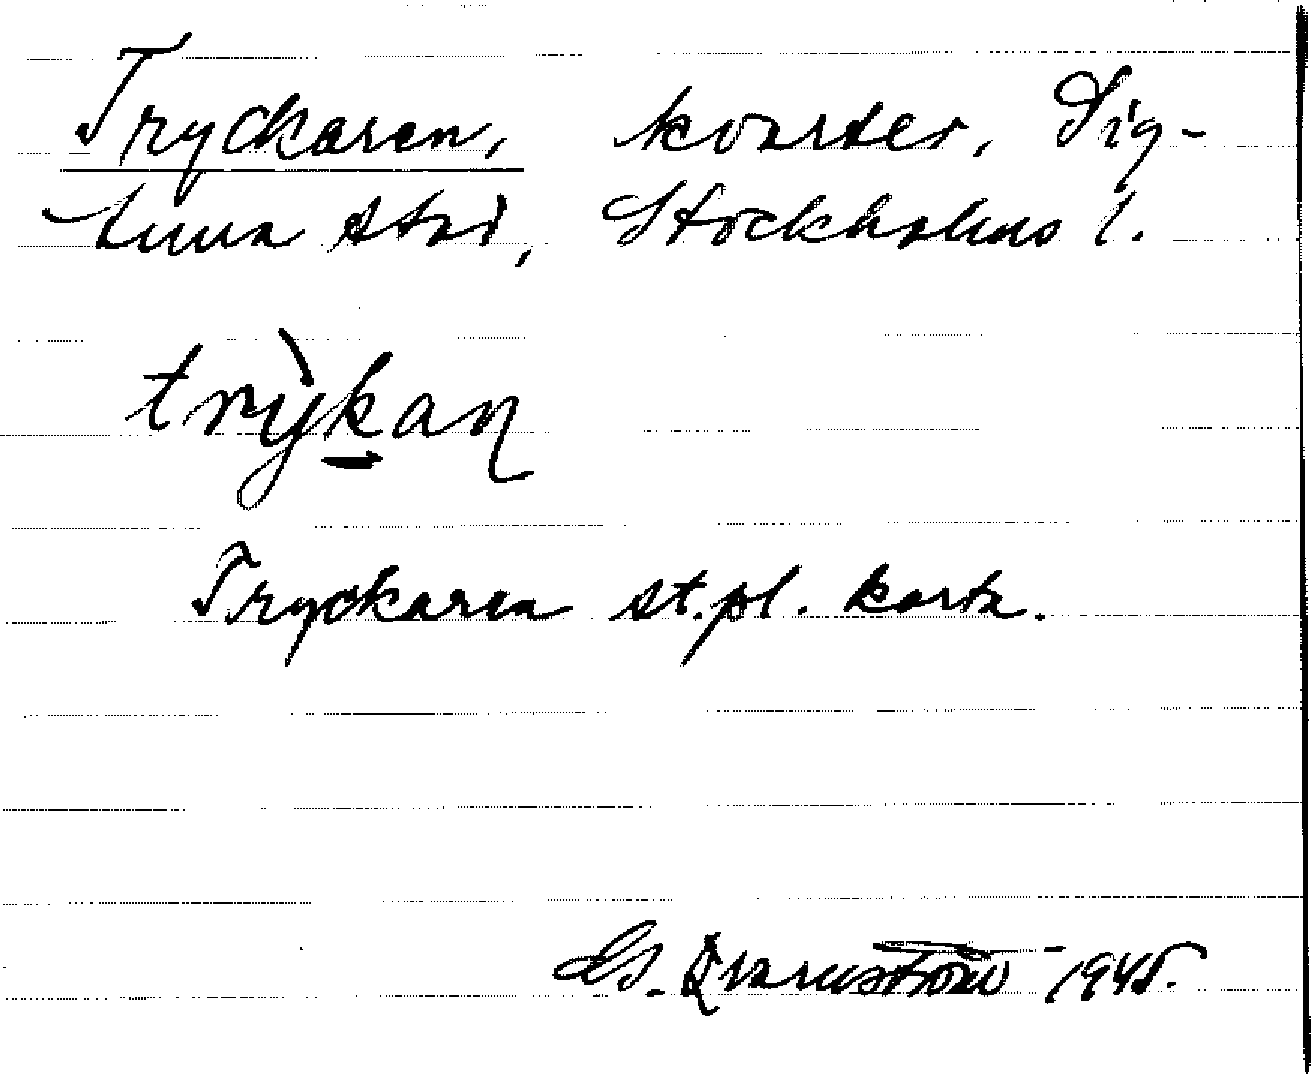 Tryckaren, kvarter, Sig-
tuna stad, Stockholms l.
trỳkaṇ
Tryckaren st.pl. karta.
Es. Qvarnström 1945.